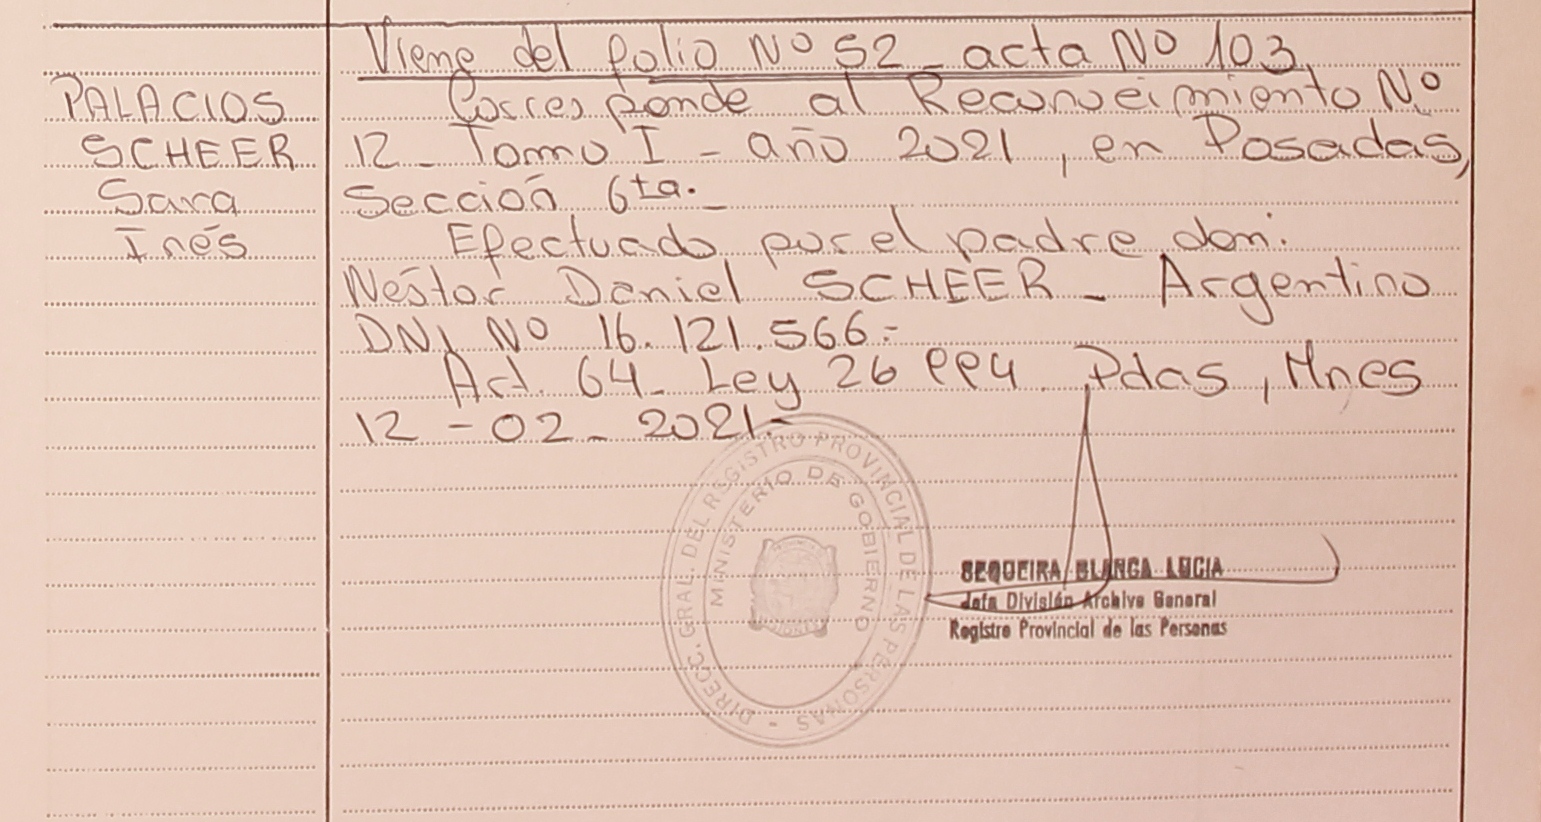 Viene del folio Nº 52_ acta Nº 103.
PALACIOS
SCHEER
Sara
Inés
Corresponde al Reconocimiento Nº
12_ Tomo I - año 2021, en Posadas,
Sección 6ta._
Efectuado por el padre don:
Néstor Daniel SCHEER_ Argentino
DNI Nº 16.121.566.-
Act. 64_ Ley 26 994 Pdas, Mnes
12 - 02 _ 2021.-
DIRECC. GRAL. DEL REGISTRO PROVINCIAL DE LAS PERSONAS -
MINISTERIO DE GOBIERNO
SEQUEIRA BLANCA LUCIA
Jefa División Archivo General
Registro Provincial de las Personas